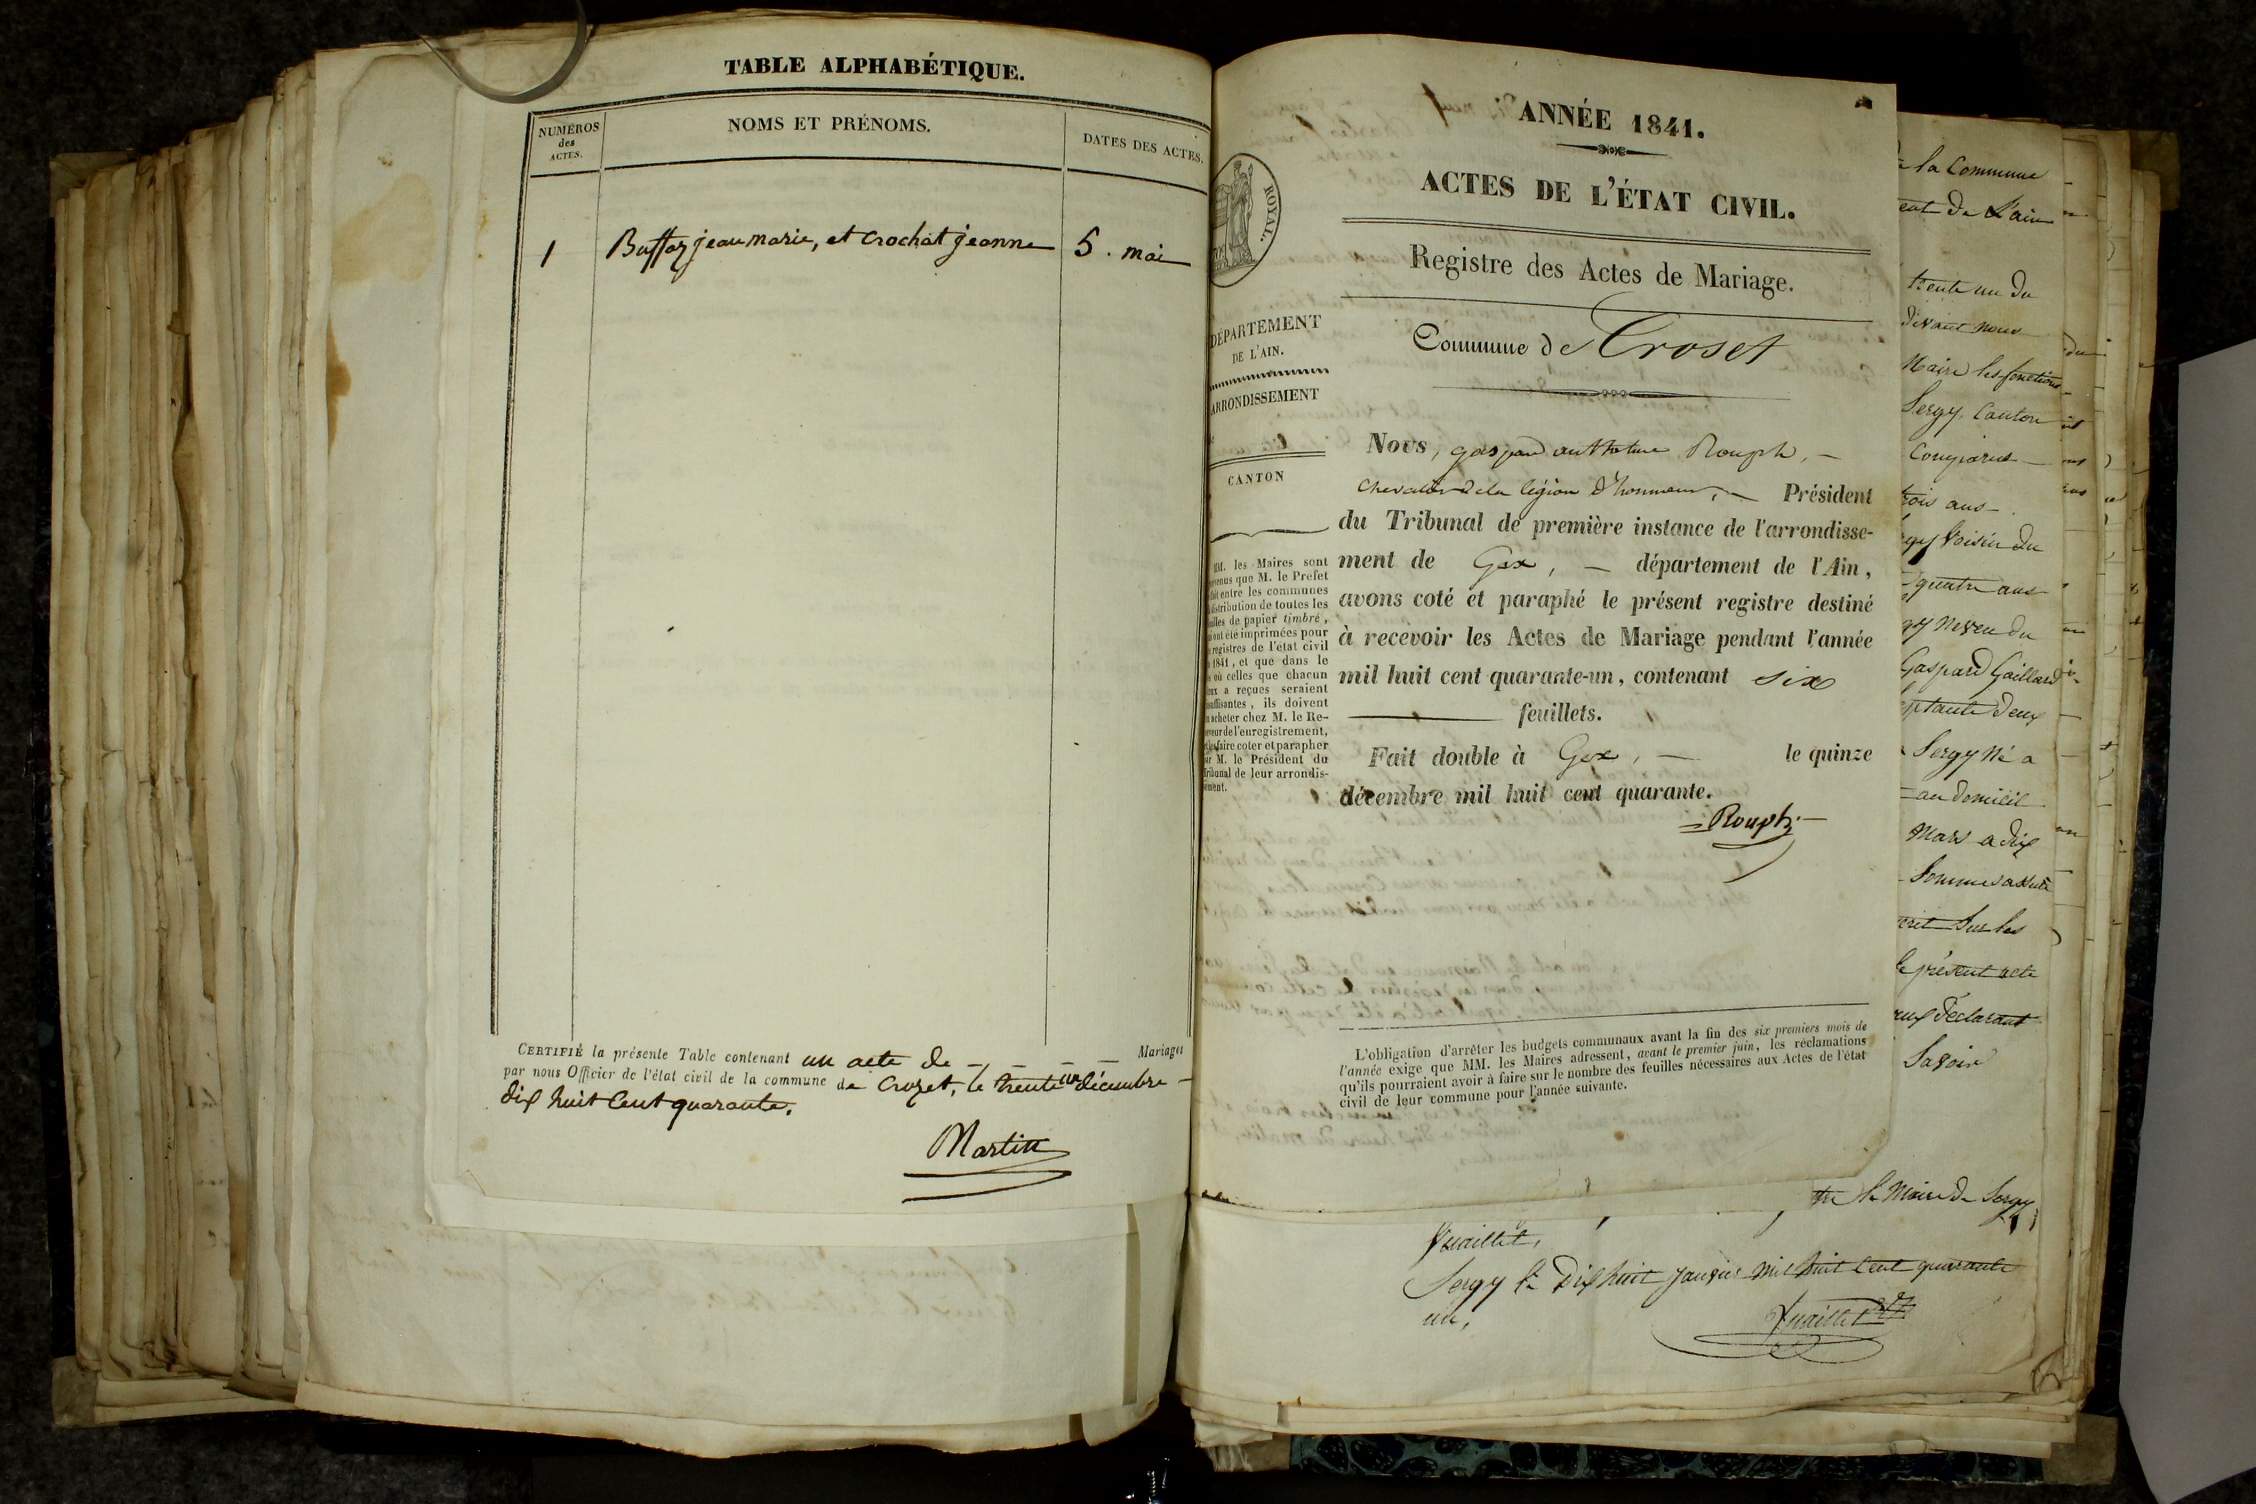 TABLE ALPHABÉTIQUE.
NUMÉROS
des
ACTES.
NOMS ET PRÉNOMS.
DATES DES ACTES.
1 Buffaz jean marie, et Crochat jeanne 5. mai
CERTIFIÉ la présente Table contenant un acte de Mariages
par nous Officier de l'état civil de la commune de Crozet, le trente un décembre
dix huit Cent quarante.
Martin
ROYAL.
ANNÉE 1841.
ACTES DE L'ÉTAT CIVIL.
Registre des Actes de Mariage.
DÉPARTEMENT
DE L'AIN.
ARRONDISSEMENT
CANTON
MM. les Maires sont
que M. le Préfet
entre les communes
distribution de toutes les
de papier timbré,
ont été imprimées pour
registres de l'état civil
1841, et que dans le
où celles que chacun
a reçues seraient
, ils doivent
acheter chez M. le Re-
de l'enregistrement,
faire coter et parapher
M. le Président du
Tribunal de leur arrondis-
sement.
Commune de Croset
Nous, gaspard anthelme Rouph,
chevalier de la légion d'honneur, Président
du Tribunal de première instance de l'arrondisse-
ment de Gex, département de l'Ain,
avons coté et paraphé le présent registre destiné
à recevoir les Actes de Mariage pendant l'année
mil huit cent quarante-un, contenant six
feuillets.
Fait double à Gex, le quinze
décembre mil huit cent quarante.
Rouph
L'obligation d'arrêter les budgets communaux avant la fin des six premiers mois de
l'année exige que MM. les Maires adressent, avant le premier juin, les réclamations
qu'ils pourraient avoir à faire sur le nombre des feuilles nécessaires aux Actes de l'état
civil de leur commune pour l'année suivante.
la Commune
de l'ain
trente un du
devant nous
Maire les fonctions
Sergy Canton
trois ans
Voisin du
quatre ans
neveu du
Gaspard Gaillard
deux
Sergy né a
au domicil
Mars a dix
Sommes
Sur les
le présent acte
déclarant
Savoir
le Maire de Sergy
Sergy le Dix huit janvier mil huit Cent quarante
un,